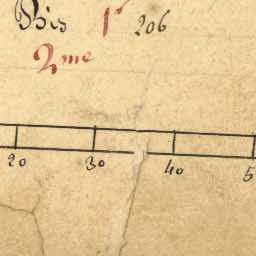 Bis 1r 206
2me
20 30 40 5